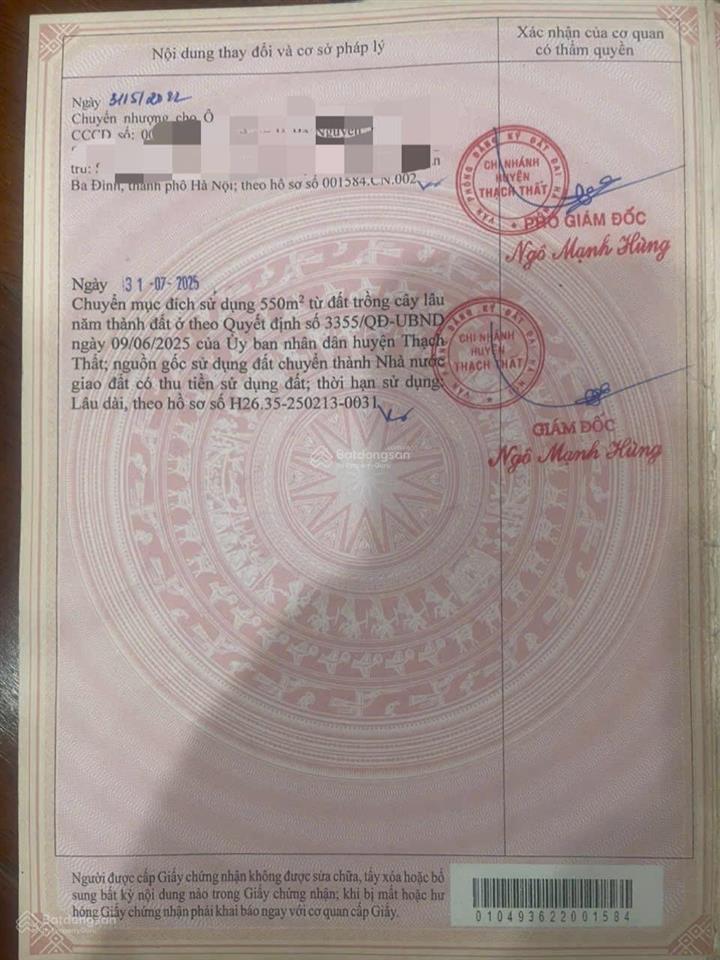 Nội dung thay đổi và cơ sở pháp lý
Xác nhận của cơ quan
có thẩm quyền
Ngày 3/5/2022
Chuyển nhượng cho Ô
CCCD số: 0
Nguyễn
trú:
Ba Đình, thành phố Hà Nội; theo hồ sơ số 001584.CN.002
VĂN PHÒNG ĐĂNG KÝ ĐẤT ĐAI HÀ
CHI NHÁNH
HUYỆN
THẠCH THẤT
PHÓ GIÁM ĐỐC
Ngô Mạnh Hùng
Ngày 31-07-2025
Chuyển mục đích sử dụng 550m² từ đất trồng cây lâu
năm thành đất ở theo Quyết định số 3355/QĐ-UBND
ngày 09/06/2025 của Ủy ban nhân dân huyện Thạch
Thất; nguồn gốc sử dụng đất chuyển thành Nhà nước
giao đất có thu tiền sử dụng đất; thời hạn sử dụng:
Lâu dài, theo hồ sơ số H26.35-250213-0031
VĂN PHÒNG ĐĂNG KÝ ĐẤT ĐAI HÀ
CHI NHÁNH
HUYỆN
THẠCH THẤT
GIÁM ĐỐC
Ngô Mạnh Hùng
Batdongsan
by PropertyGuru
Người được cấp Giấy chứng nhận không được sửa chữa, tẩy xóa hoặc bổ
sung bất kỳ nội dung nào trong Giấy chứng nhận; khi bị mất hoặc hư
hỏng Giấy chứng nhận phải khai báo ngay với cơ quan cấp Giấy.
010493622001584
Batdongsan
by PropertyGuru